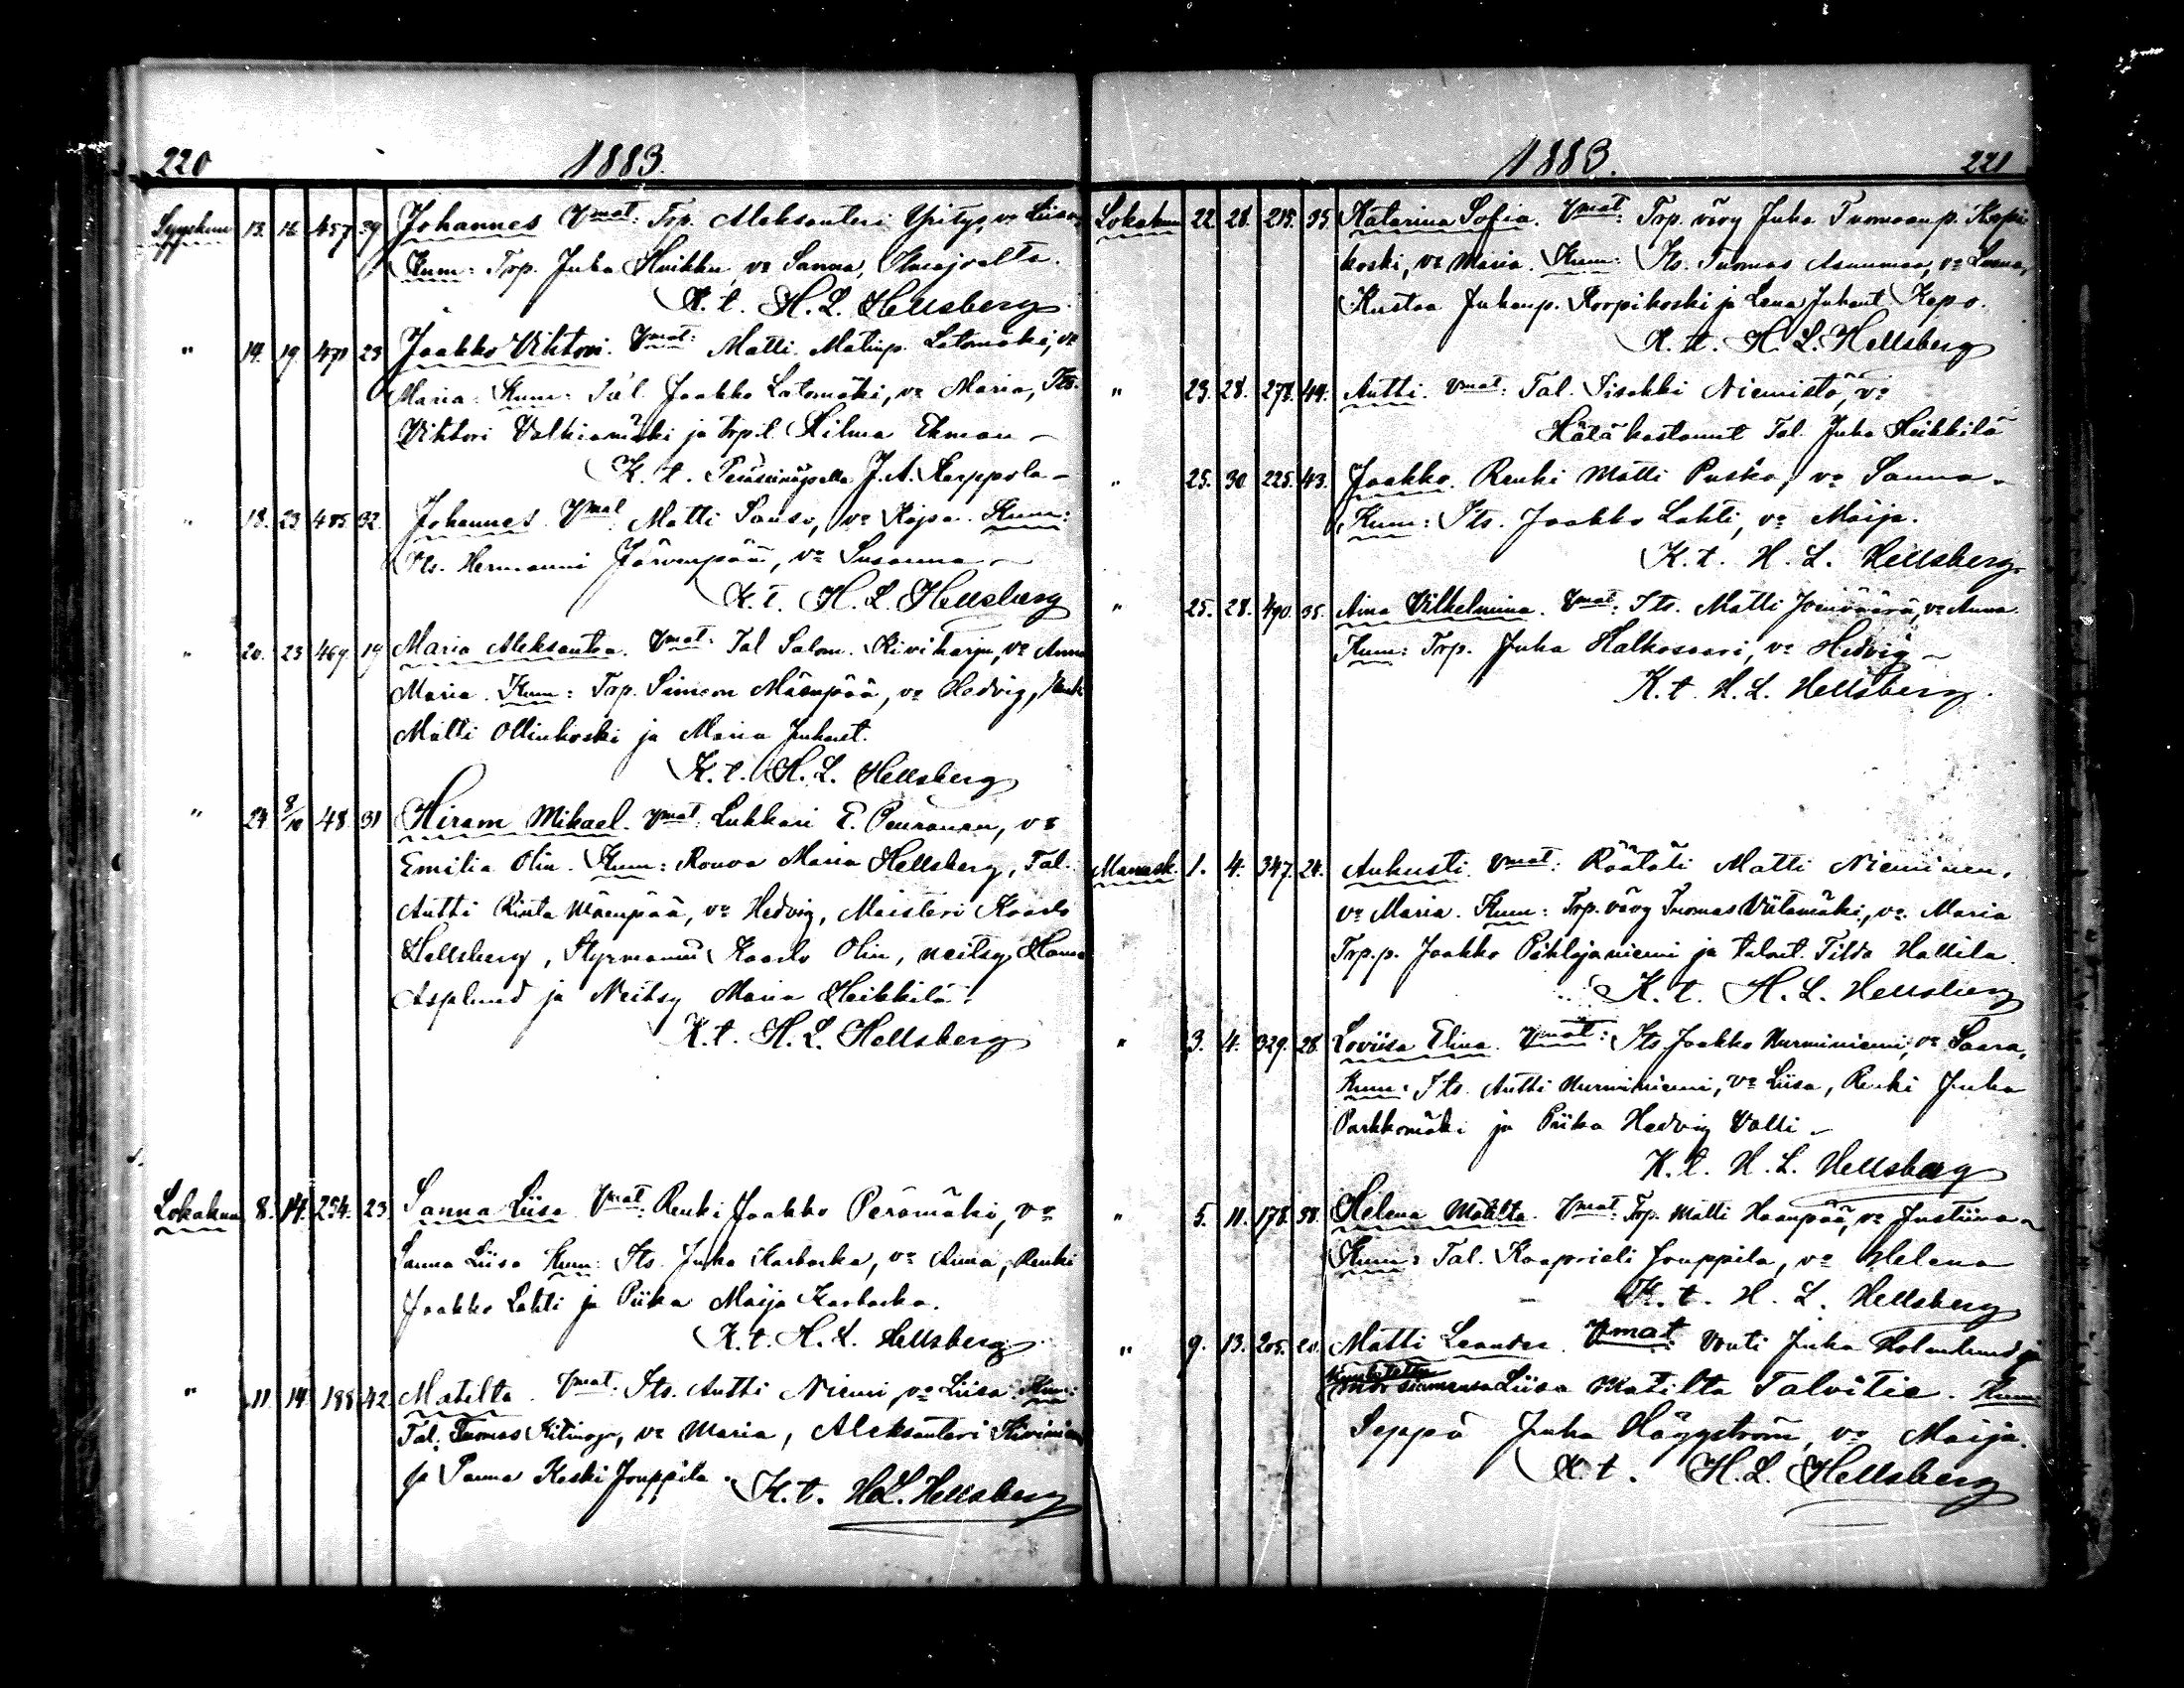 220 1883.
Syyskuu 13. 16. 457 39 Johannes Vmat: Trp. Aleksanteri Yritys, vo Liisa
Kum: Trp. Juha Huikku, vo Sanna, Ilmajoelta.
K. t. H. L. Hellsberg
" 14. 19. 471 23 Jaakko Vihtori. Vmat: Matti Matinp. Latomäki, vo
Maria. Kum: Tal. Jaakko Latomäki, vo Maria, Its.
Vihtori Valkiamäki ja trp.t. Hilma Ekman
K. t. J. A. Karppola
" 18. 23 485 32. Johannes Vmat Matti Sauso, vo Kajsa. Kum:
Its. Hermanni Järvenpää, vo Susanna
K. t. H. L. Hellsberg
" 20. 23 469 19 Maria Aleksantra. Vmat. Tal Salom. Kiviharju, vo Anna
Maria. Kum: Trp. Simson Mäenpää, vo Hedvig, Renki
Matti Ollinkoski ja Maria Juhant.
K. t. H. L. Hellsberg
" 24 8/10 48 31 Hiram Mikael. Vmat: Lukkari E. Peuranen, vo
Emilia Olin. Kum: Rouva Maria Hellsberg, Tal.
Antti Rinta Mäenpää, vo Hedvig, Maisteri Kaarlo
Hellsberg, Styrmanni Kaarlo Olin, neitsy Hanna
Asplund ja Neitsy Maria Heikkilä.
K. t. H. L. Hellsberg
Lokakuu 8. 14. 254. 23. Sanna Liisa Vmat: Renki Jaakko Perämäki, vo
Sanna Liisa Kum: Its. Juha Karhaka, vo Anna, Renki
Jaakko Lahti ja Piika Maija Karhaka.
K. t. H. L. Hellsberg
" 11. 14. 188 42. Matilta. Vmat: Its. Antti Niemi, vo Liisa Kum:
Tal. Tuomas Kitinoja, vo Maria, Aleksanteri Kiviniemi
ja Sanna Keski Jouppila. K. t. H. L. Hellsberg
1883. 221
Lokakuu 22. 28. 35. Katarina Sofia. Vmat: Trp. vävy Juha Tuomaanp. Korpi
koski, vo Maria. Kum: Its. Tuomas Asunmaa, vo Leena,
Kustaa Juhanp. Korpikoski ja Lena Juhant Kepo.
K. t. H. L. Hellsberg
" 23. 28. 278. 44. Antti. Vmat: Tal. Iisakki Niemistö, vo
Hätäkastanut Tal. Juha Heikkilä
" 25. 30. 225. 43. Jaakko. Renki Matti Puska, vo Sanna.
Kum: Its. Jaakko Lahti, vo Maija.
K. t. H. L. Hellsberg
" 25. 28. 490. 35. Aina Vilhelmina. Vmat: Its. Matti Jouivaara, vo Anna.
Kum: Trp. Juha Halkosaari, vo Hedvig
K. t. H. L. Hellsberg.
Marrask. 1. 4. 347. 24. Aukusti. Vmat: Räätäli Matti Nieminen,
vo Maria. Kum: Trp. vävy Tuomas Viitamäki, vo Maria
Trp.p. Jaakko Pihlajaniemi ja talont. Tilda Hallila.
K. t. H. L. Hellsberg
" 3. 4. 329. 28. Loviisa Elina. Vmat: Its Jaakko Nurminiemi, vo Saara,
Kum: Its. Antti Nurminiemi, vo Liisa, Renki Juha
Parkkomäki ja Piika Hedvig Valli
K. t. H. L. Hellsberg
" 5. 11. 178. 38. Helena Matilta. Vmat: Trp. Matti Haanpää, vo Justiina
Kum: Tal. Kaaprieli Jouppila, vo Helena
K. t. H. L. Hellsberg
" 9. 13. 205. 20. Matti Leander. Vmat. Vouti Juha Holmlund ja
Liisa Matilta Talvitie. Kum:
Seppä Juha Häggström, vo Maija.
K. t. H. L. Hellsberg